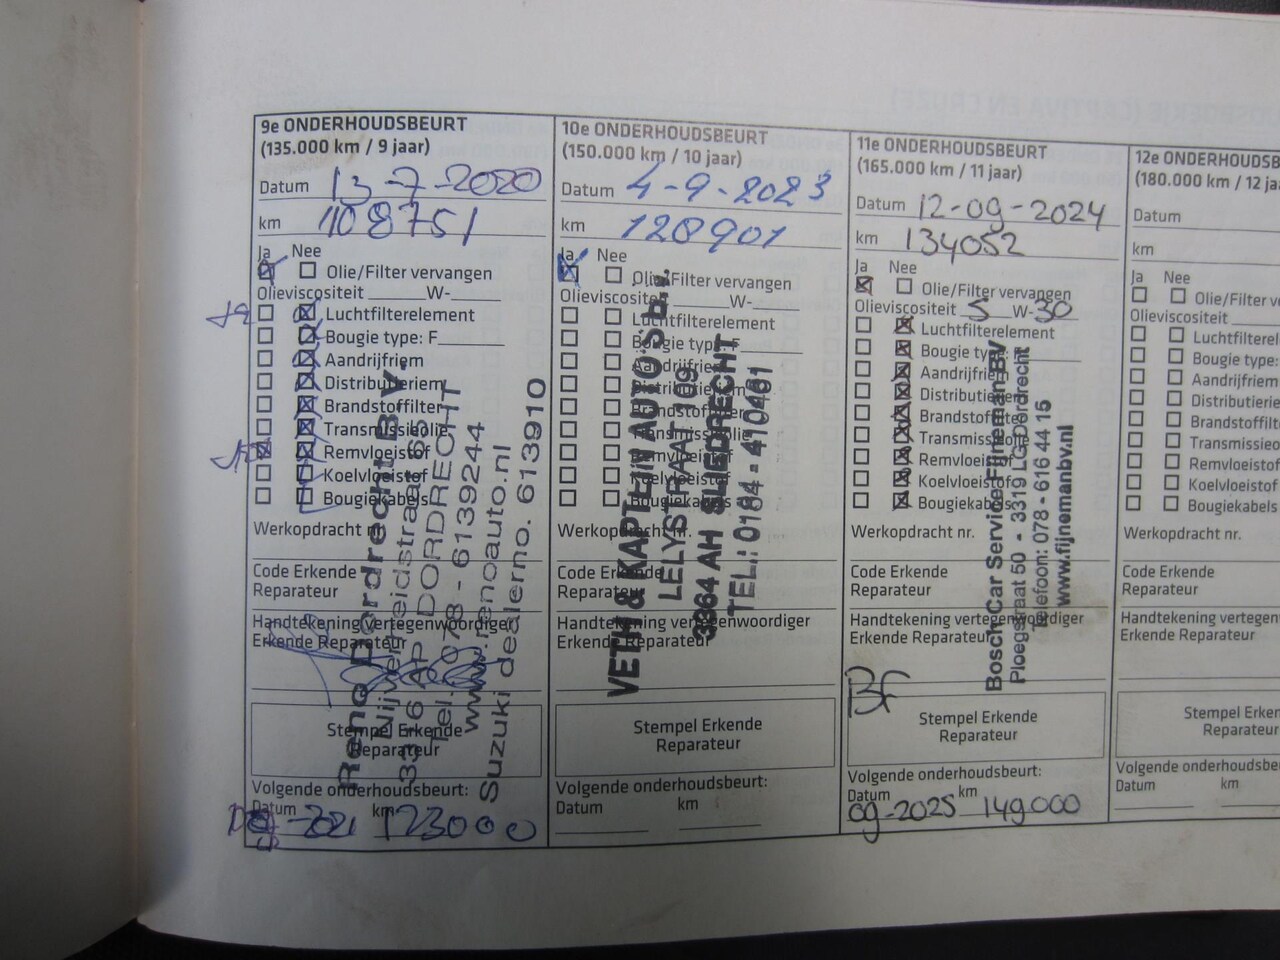 9e ONDERHOUDSBEURT
(135.000 km / 9 jaar)
Datum 13-7-2020
km 108751
Ja Nee
Olie/Filter vervangen
Olieviscositeit W-
Luchtfilterelement
Bougie type: F
Aandrijfriem
Distributieriem
Brandstoffilter
Transmissieolie
Remvloeistof
Koelvloeistof
Bougiekabels
Werkopdracht nr.
Code Erkende
Reparateur
Handtekening vertegenwoordiger
Erkende Reparateur
Stempel Erkende
Reparateur
Volgende onderhoudsbeurt:
Datum km
2021 123000
Reno Dordrecht B.V.
DORDRECHT
Tel. 078 - 6139244
www.renoauto.nl
Suzuki dealerno. 613910
10e ONDERHOUDSBEURT
(150.000 km / 10 jaar)
Datum 4-9-2023
km 128901
Ja Nee
Olie/Filter vervangen
Olieviscositeit W-
Luchtfilterelement
Bougie type: F
Aandrijfriem
Distributieriem
Brandstoffilter
Transmissieolie
Remvloeistof
Koelvloeistof
Bougiekabels
Werkopdracht nr.
Code Erkende
Reparateur
Handtekening vertegenwoordiger
Erkende Reparateur
Stempel Erkende
Reparateur
Volgende onderhoudsbeurt:
Datum km
VETH & KAPTEIN AUTO'S b.v.
LELYSTRAAT 109
3364 AH SLIEDRECHT
TEL.: 0184 - 410401
11e ONDERHOUDSBEURT
(165.000 km / 11 jaar)
Datum 12-09-2024
km 134052
Ja Nee
Olie/Filter vervangen
Olieviscositeit 5 W-30
Luchtfilterelement
Bougie type:
Aandrijfriem
Distributieriem
Brandstoffilter
Transmissieolie
Remvloeistof
Koelvloeistof
Bougiekabels
Werkopdracht nr.
Code Erkende
Reparateur
Handtekening vertegenwoordiger
Erkende Reparateur
BF
Stempel Erkende
Reparateur
Volgende onderhoudsbeurt:
Datum km
09-2025 149000
Bosch Car Service Fijneman BV
Ploegstraat 50 - 3319 LG Dordrecht
Telefoon: 078 - 616 44 15
www.fijnemanbv.nl
12e ONDERHOUDSB
(180.000 km / 12 jaa
Datum
km
Ja Nee
Olie/Filter v
Olieviscositeit
Luchtfiltere
Bougie type:
Aandrijfriem
Distributierie
Brandstoffilt
Transmissieo
Remvloeistof
Koelvloeistof
Bougiekabels
Werkopdracht nr.
Code Erkende
Reparateur
Handtekening verteg
Erkende Reparateur
Stempel Erk
Repara
Volgende onderhoudsb
Datum km